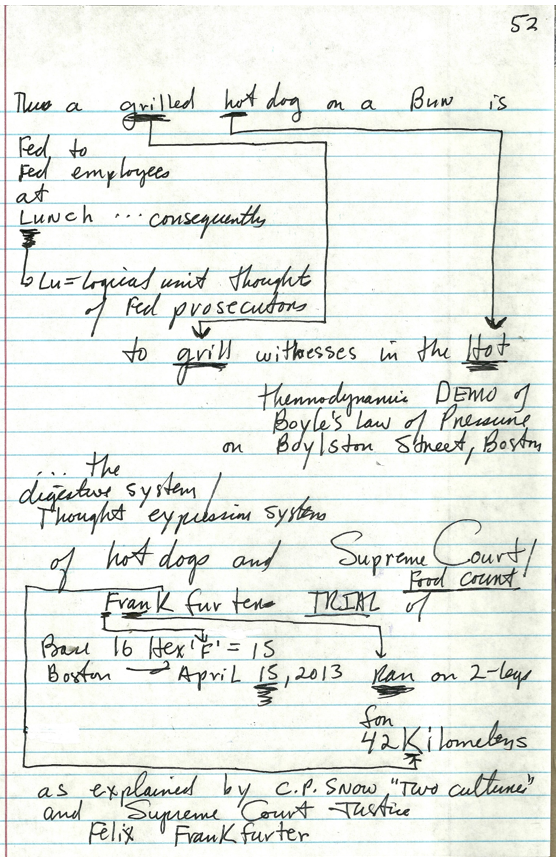 52
Thus a grilled hot dog on a Bun is
Fed to
Fed employees
at
LUNCH ... consequently
Lu = Logical unit thought
of Fed prosecutors
to grill witnesses in the Hot
thermodynamic DEMO of
Boyle's Law of Pressure
on Boylston Street, Boston
... the
digestive system /
Thought expression system
of hot dogs and Supreme Court /
Food court
FranK furters TRIAL of
Base 16 Hex 'F' = 15
Boston April 15, 2013 Ran on 2-legs
for
42 Kilometers
as explained by C.P. Snow "Two cultures"
and Supreme Court Justice
Felix FranKfurter